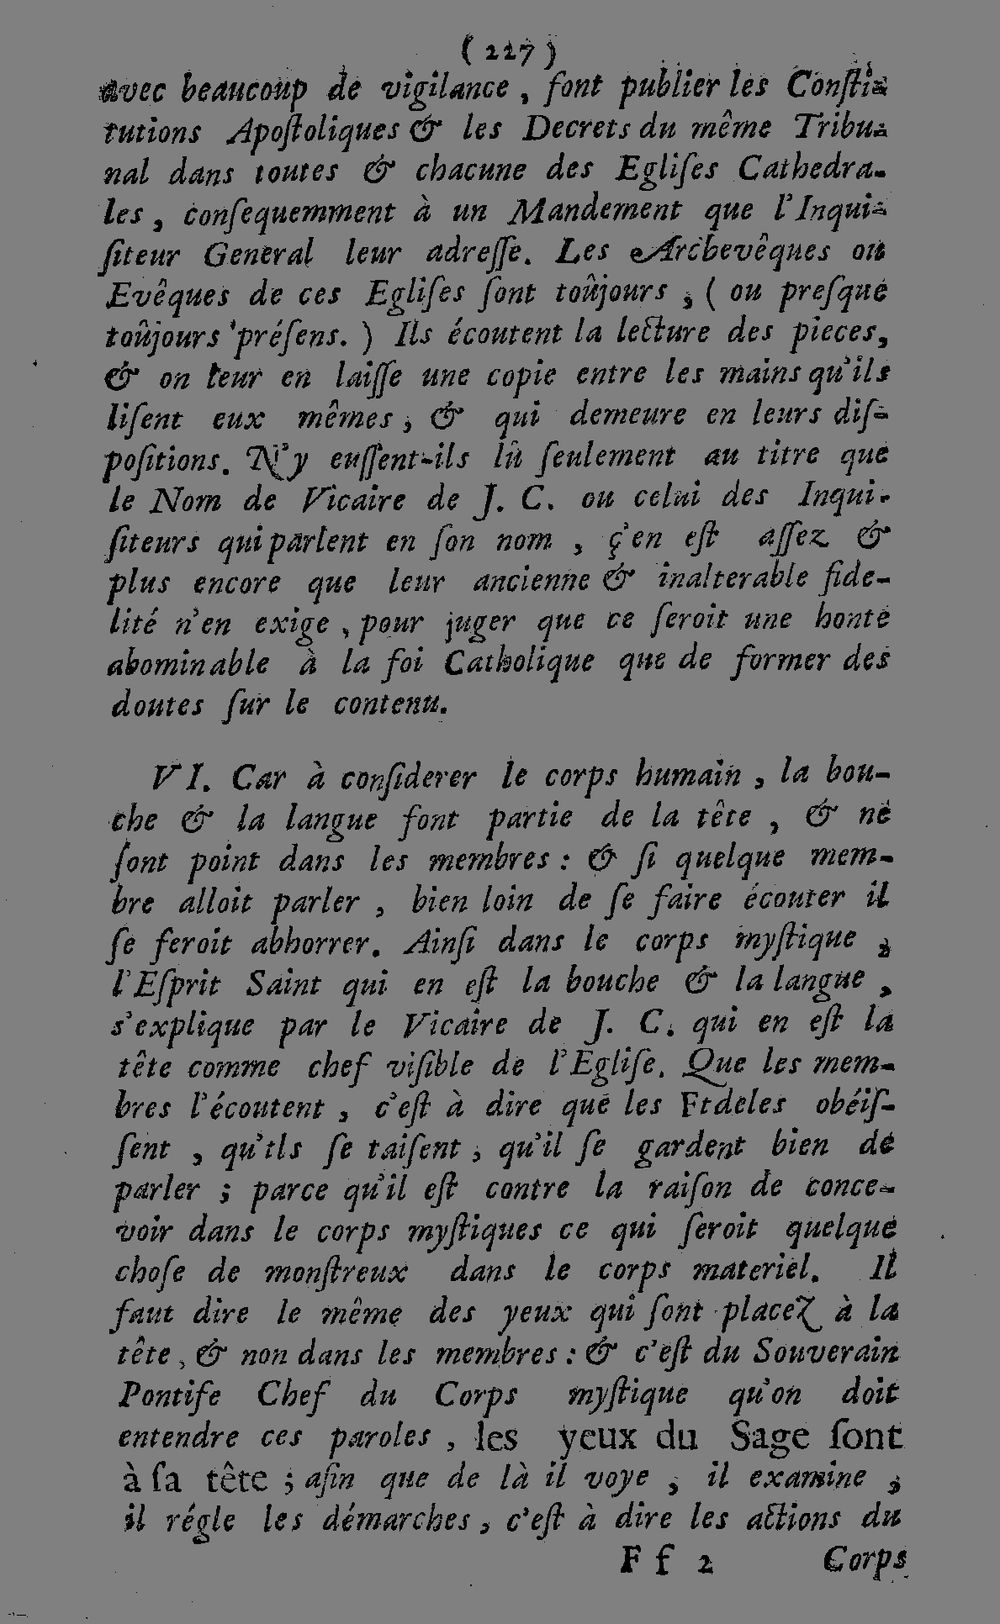 ( 227 )
avec beaucoup de vigilance , font publier les Conſti-
tutions Apoſtoliques & les Decrets du même Tribu-
nal dans toutes & chacune des Egliſes Cathedra-
les , conſequemment à un Mandement que l'Inqui-
ſiteur General leur adreſſe. Les Archevêques ou
Evêques de ces Egliſes ſont toûjours , ( ou preſque
toûjours préſens. ) Ils écoutent la lecture des pieces,
& on leur en laiſſe une copie entre les mains qu'ils
liſent eux mêmes , & qui demeure en leurs diſ-
poſitions. N'y euſſent-ils lû ſeulement au titre que
le Nom de Vicaire de J. C. ou celui des Inqui-
ſiteurs qui parlent en ſon nom , ç'en eſt aſſez &
plus encore que leur ancienne & inalterable fide-
lité n'en exige , pour juger que ce ſeroit une honte
abominable à la foi Catholique que de former des
doutes ſur le contenu.
VI. Car à conſiderer le corps humain , la bou-
che & la langue font partie de la tête , & ne
ſont point dans les membres : & ſi quelque mem-
bre alloit parler , bien loin de ſe faire écouter il
ſe feroit abhorrer. Ainſi dans le corps myſtique ,
l'Eſprit Saint qui en eſt la bouche & la langue ,
s'explique par le Vicaire de J. C. qui en eſt la
tête comme chef viſible de l'Egliſe. Que les mem-
bres l'écoutent , c'eſt à dire que les Ftdeles obéiſ-
ſent , qu'tls ſe taiſent , qu'il ſe gardent bien de
parler ; parce qu'il eſt contre la raiſon de conce-
voir dans le corps myſtiques ce qui ſeroit quelque
choſe de monſtreux dans le corps materiel. Il
faut dire le même des yeux qui ſont placeZ à la
tête , & non dans les membres : & c'eſt du Souverain
Pontife Chef du Corps myſtique qu'on doit
entendre ces paroles , les yeux du Sage ſont
à ſa tête ; afin que de là il voye , il examine ,
il régle les démarches , c'eſt à dire les actions du
F f 2 Corps